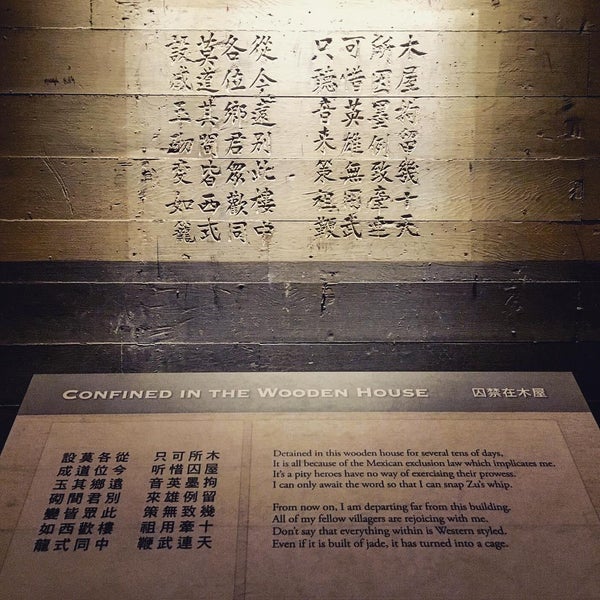 木屋拘留幾十天
所囚墨例致牽連
可惜英雄無用武
只聽音来策祖鞭
從今遠別此樓中
各位鄉君眾歡同
莫道其間皆西式
設成玉砌变如籠
CONFINED IN THE WOODEN HOUSE 囚禁在木屋
木屋拘留幾十天
所囚墨例致牽連
可惜英雄無用武
只听音來策祖鞭
從今遠別此樓中
各位鄉君眾歡同
莫道其間皆西式
設成玉砌變如籠
Detained in this wooden house for several tens of days,
It is all because of the Mexican exclusion law which implicates me.
It's a pity heroes have no way of exercising their prowess.
I can only await the word so that I can snap Zu's whip.
From now on, I am departing far from this building.
All of my fellow villagers are rejoicing with me.
Don't say that everything within is Western styled.
Even if it is built of jade, it has turned into a cage.